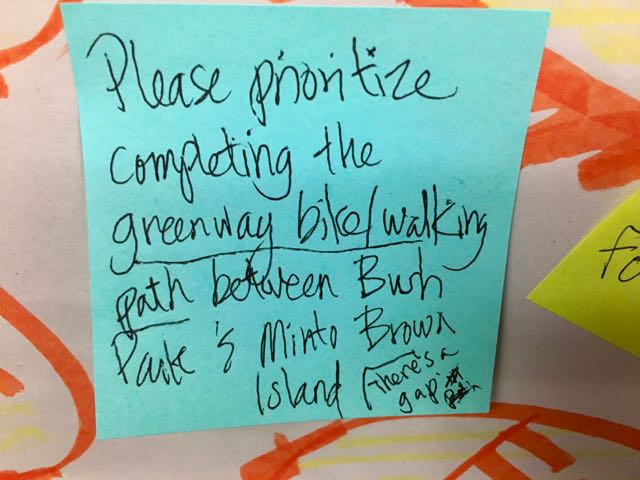 Please prioritize
completing the
greenway bike/walking
path between Bush
Park & Minto Brown
Island
There's a
gap
Fo